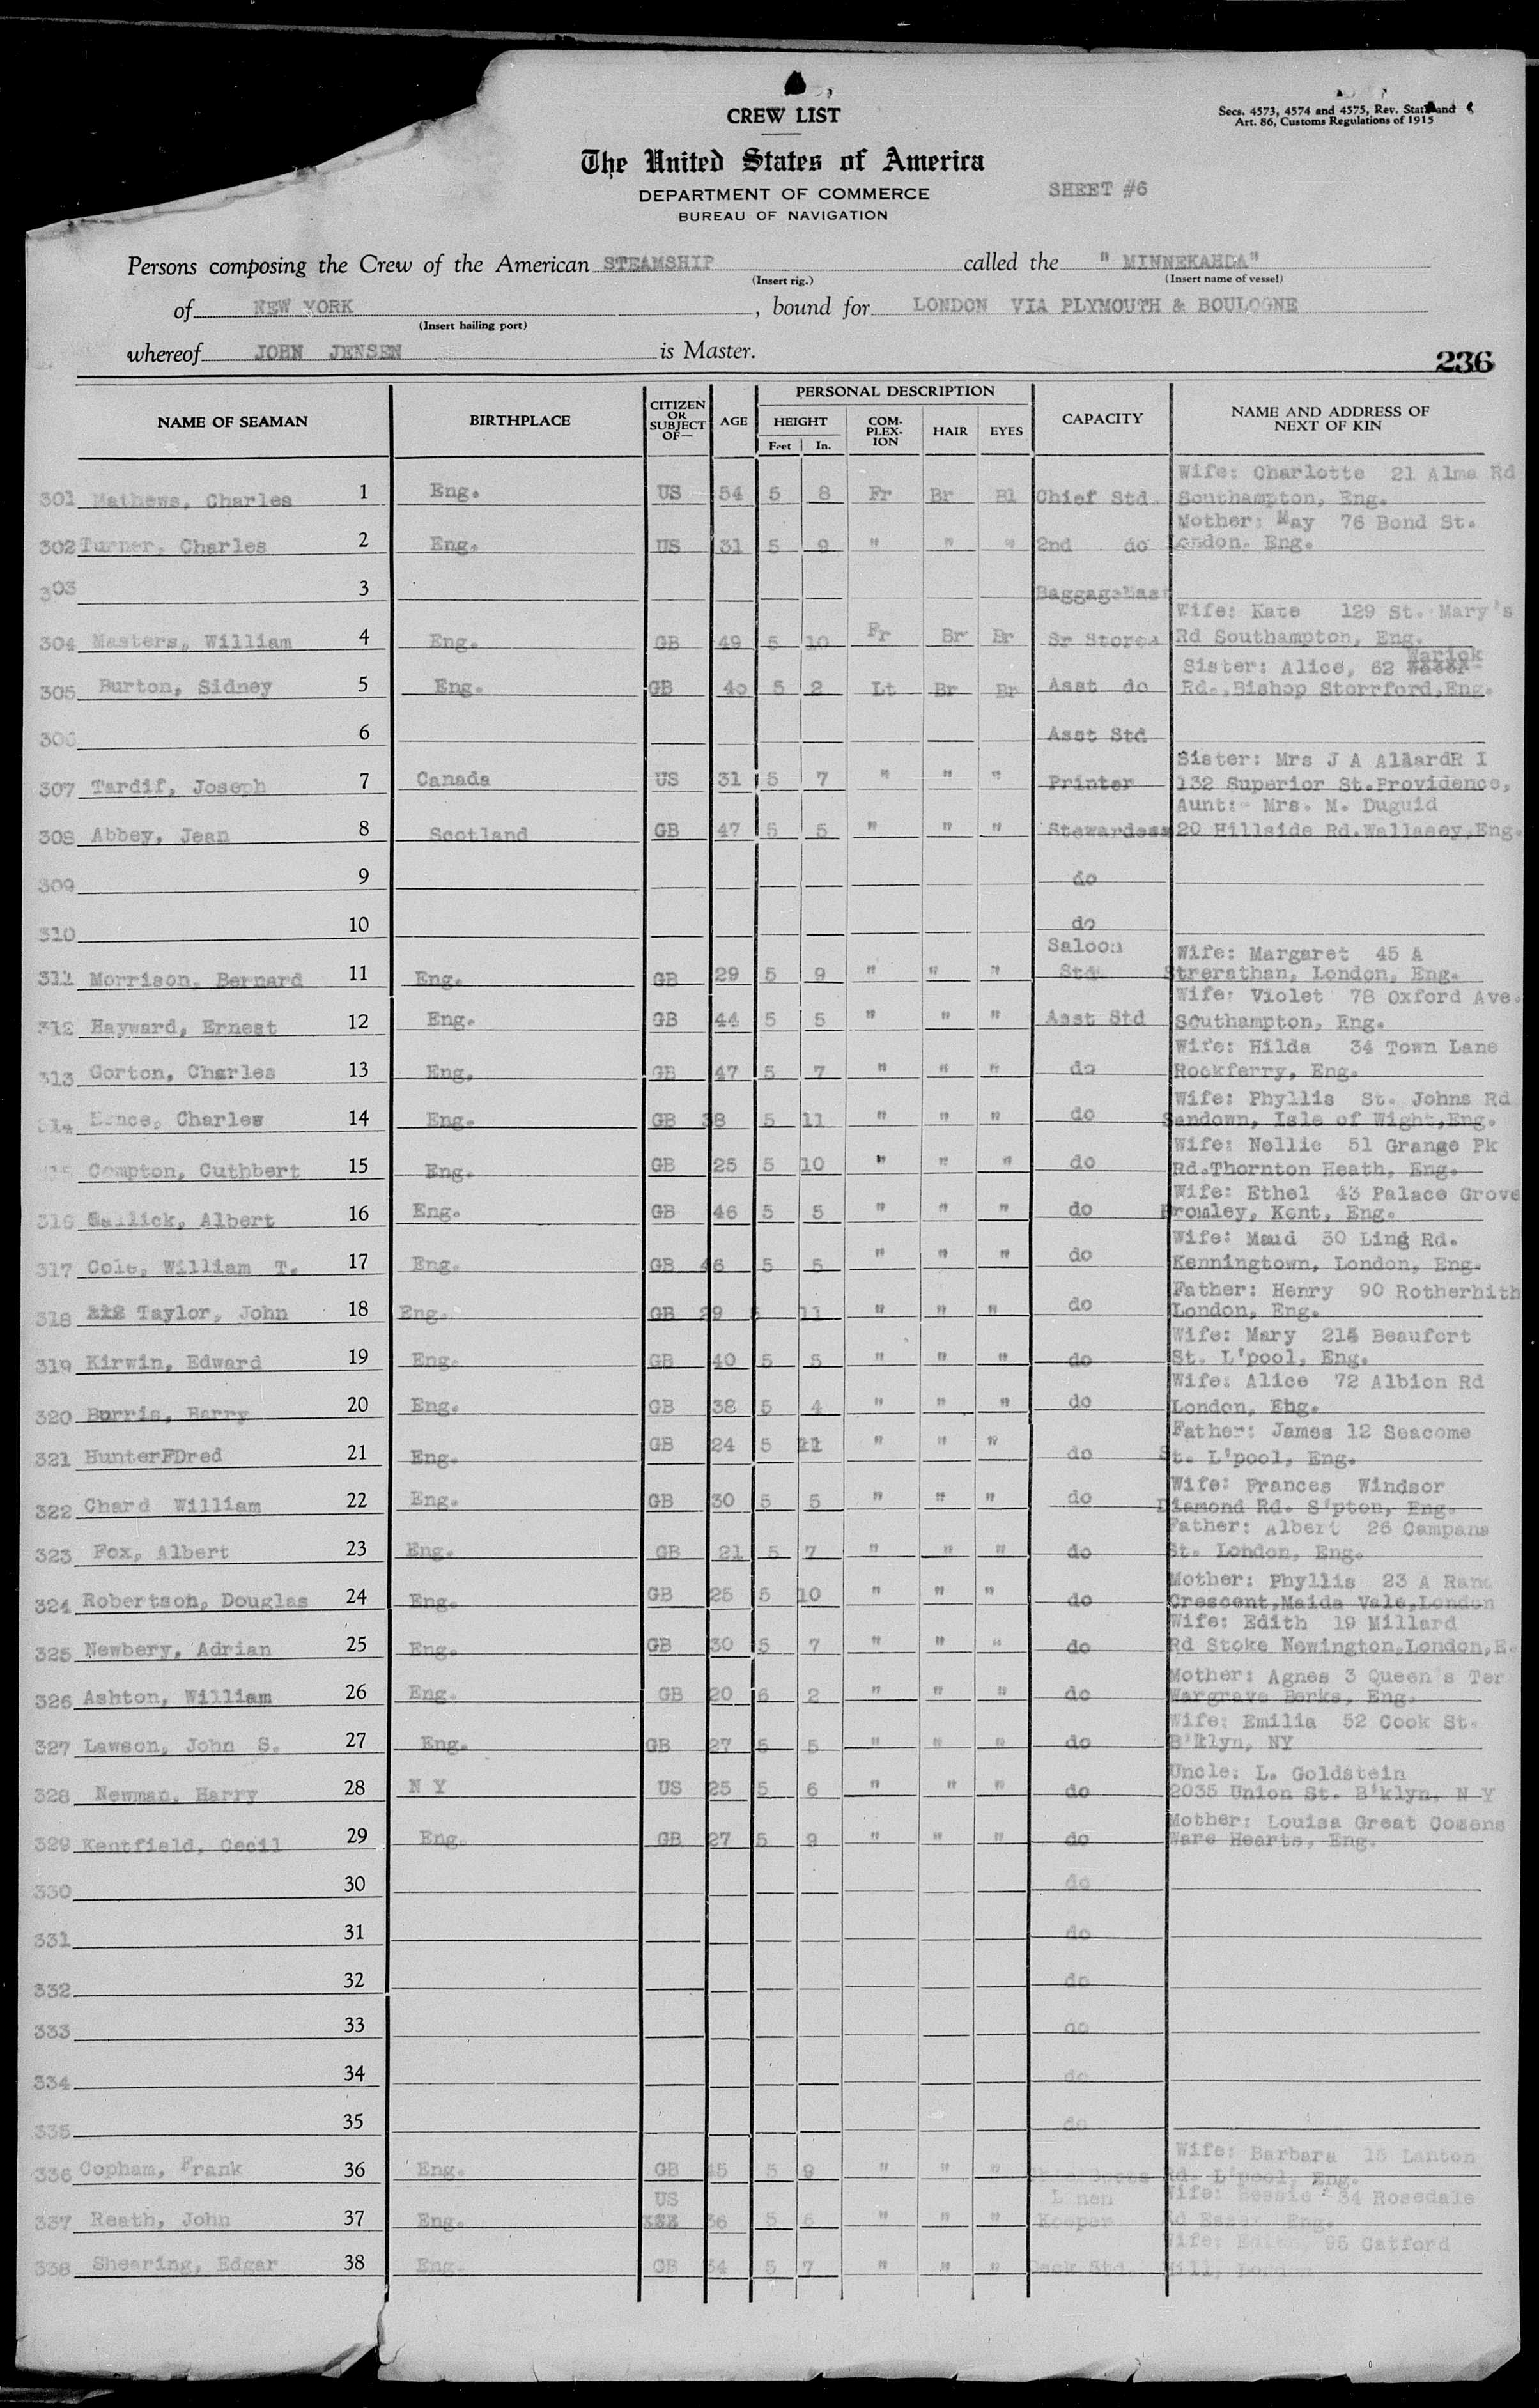 CREW LIST
Secs. 4573, 4574 and 4575, Rev. Stat. and
Art. 86, Customs Regulations of 1915
The United States of America
DEPARTMENT OF COMMERCE
SHEET #6
BUREAU OF NAVIGATION
Persons composing the Crew of the American STEAMSHIP called the " MINNEKAHDA"
(Insert rig.) (Insert name of vessel)
of NEW YORK , bound for LONDON VIA PLYMOUTH & BOULOGNE
(Insert hailing port)
whereof JOHN JENSEN is Master.
236
NAME OF SEAMAN BIRTHPLACE CITIZEN OR SUBJECT OF— AGE PERSONAL DESCRIPTION CAPACITY NAME AND ADDRESS OF NEXT OF KIN
HEIGHT COM-PLEX-ION HAIR EYES
Feet In.
Wife: Charlotte 21 Alma Rd
301 Mathews, Charles 1 Eng. US 54 5 8 Fr Br Bl Chief Std. Southampton, Eng.
Mother: May 76 Bond St.
302 Turner, Charles 2 Eng. US 31 5 9 " " " 2nd do London. Eng.
303 3 BaggageMast
Wife: Kate 129 St. Mary's
304 Masters, William 4 Eng. GB 49 5 10 Fr Br Br Sr Stores Rd Southampton, Eng.
Sister: Alice, 62 Warick
305 Burton, Sidney 5 Eng. GB 40 5 2 Lt Br Br Asst do Rd.,Bishop Storrford,Eng.
306 6 Asst Std
Sister: Mrs J A AllardR I
307 Tardif, Joseph 7 Canada US 31 5 7 " " " Printer 132 Superior St.Providence,
Aunt:- Mrs. M. Duguid
308 Abbey, Jean 8 Scotland GB 47 5 5 " " " Stewardess 20 Hillside Rd.Wallasey,Eng.
309 9 do
310 10 do
Saloon Wife: Margaret 45 A
311 Morrison, Bernard 11 Eng. GB 29 5 9 " " " Std. Strerathan, London, Eng.
Wife: Violet 78 Oxford Ave.
312 Hayward, Ernest 12 Eng. GB 44 5 5 " " " Asst Std Southampton, Eng.
Wife: Hilda 34 Town Lane
313 Gorton, Charles 13 Eng. GB 47 5 7 " " " do Rockferry, Eng.
Wife: Phyllis St. Johns Rd
314 Charles 14 Eng. GB 38 5 11 " " " do Sandown, Isle of Wight,Eng.
Wife: Nellie 51 Grange Pk
Compton, Cuthbert 15 Eng. GB 25 5 10 " " " do Rd.Thornton Heath, Eng.
Wife: Ethel 43 Palace Grove
316 Gallick, Albert 16 Eng. GB 46 5 5 " " " do Bromley, Kent, Eng.
Wife: Maud 50 Ling Rd.
317 Cole, William T. 17 Eng. GB 46 5 5 " " " do Kenningtown, London, Eng.
Father: Henry 90 Rotherhith
318 Taylor, John 18 Eng. GB 29 5 11 " " " do London, Eng.
Wife: Mary 215 Beaufort
319 Kirwin, Edward 19 Eng. GB 40 5 5 " " " do St. L'pool, Eng.
Wife: Alice 72 Albion Rd
320 Burris, Harry 20 Eng. GB 38 5 4 " " " do London, Ehg.
Father: James 12 Seacome
321 HunterFDred 21 Eng. GB 24 5 11 " " " do St. L'pool, Eng.
Wife: Frances Windsor
322 Chard William 22 Eng. GB 30 5 5 " " " do Diamond Rd. S'pton, Eng.
Father: Albert 26 Campana
323 Fox, Albert 23 Eng. GB 21 5 7 " " " do St. London, Eng.
Mother: Phyllis 23 A Rand
324 Robertson, Douglas 24 Eng. GB 25 5 10 " " " do Crescent,Maida Vale,London
Wife: Edith 19 Millard
325 Newbery, Adrian 25 Eng. GB 30 5 7 " " " do Rd Stoke Newington,London,E.
Mother: Agnes 3 Queen's Ter
326 Ashton, William 26 Eng. GB 20 6 2 " " " do Wargrave Berks, Eng.
Wife: Emilia 52 Cook St.
327 Lawson, John S. 27 Eng. GB 27 5 5 " " " do B'klyn, NY
Uncle: L. Goldstein
328 Newman, Harry 28 N Y US 25 5 6 " " " do 2035 Union St. B'klyn, N Y
Mother: Louisa Great Cozens
329 Kentfield, Cecil 29 Eng. GB 27 5 9 " " " do Ware Hearts, Eng.
330 30 do
331 31 do
332 32 do
333 33 do
334 34 do
335 35 do
Wife: Barbara 15 Lanton
336 Copham, Frank 36 Eng. GB 45 5 9 " " " Rd. L'pool, Eng.
US L nen Wife: Bessie 34 Rosedale
337 Reath, John 37 Eng. 36 5 6 " " " Keeper Rd Essex, Eng.
Wife: Edith, 95 Catford
338 Shearing, Edgar 38 Eng. GB 34 5 7 " " " Deck Std. Hill, London